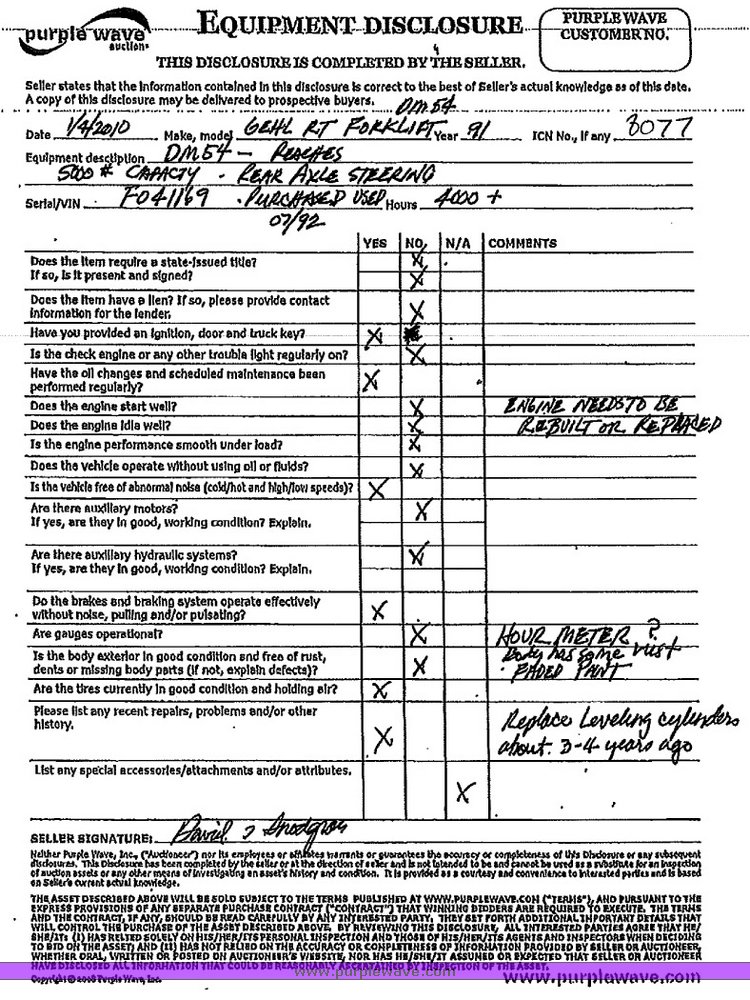 purple wave
auction®
EQUIPMENT DISCLOSURE
PURPLE WAVE
CUSTOMER NO.
THIS DISCLOSURE IS COMPLETED BY THE SELLER.
Seller states that the information contained in this disclosure is correct to the best of Seller's actual knowledge as of this date.
A copy of this disclosure may be delivered to prospective buyers.
DM54
Date 1/4/2010 Make, model GEHL RT FORKLIFT Year 91 ICN No., if any 3077
Equipment description DM54 - REACHES
5000 # CAPACITY - REAR AXLE STEERING
Serial/VIN F041169 . PURCHASED USED Hours 4000 +
07/92
YES NO N/A COMMENTS
Does the item require a state-issued title? X
If so, is it present and signed? X
Does the item have a lien? If so, please provide contact
information for the lender. X
Have you provided an ignition, door and truck key? X
Is the check engine or any other trouble light regularly on? X
Have the oil changes and scheduled maintenance been
performed regularly? X
Does the engine start well? X ENGINE NEEDS TO BE
Does the engine idle well? X REBUILT OR REPLACED
Is the engine performance smooth under load? X
Does the vehicle operate without using oil or fluids? X
Is the vehicle free of abnormal noise (cold/hot and high/low speeds)? X
Are there auxiliary motors? X
If yes, are they in good, working condition? Explain.
Are there auxiliary hydraulic systems? X
If yes, are they in good, working condition? Explain.
Do the brakes and braking system operate effectively
without noise, pulling and/or pulsating? X
Are gauges operational? X HOUR METER ?
Is the body exterior in good condition and free of rust, Body has some rust +
dents or missing body parts (if not, explain defects)? X FADED PANT
Are the tires currently in good condition and holding air? X
Please list any recent repairs, problems and/or other Replace Leveling cylenders
history. X about 3-4 years ago
List any special accessories/attachments and/or attributes. X
SELLER SIGNATURE: David J Snodgrass
Neither Purple Wave, Inc., ("Auctioneer") nor its employees or affiliates warrants or guarantees the accuracy or completeness of this Disclosure or any subsequent
disclosures. This Disclosure has been completed by the seller or at the direction of seller and is not intended to be and cannot be used as a substitute for an inspection
of auction assets or any other means of investigating an asset's history and condition. It is provided as a courtesy and convenience to interested parties and is based
on Seller's current actual knowledge.
THE ASSET DESCRIBED ABOVE WILL BE SOLD SUBJECT TO THE TERMS PUBLISHED AT WWW.PURPLEWAVE.COM ("TERMS"), AND PURSUANT TO THE
EXPRESS PROVISIONS OF ANY SEPARATE PURCHASE CONTRACT ("CONTRACT") THAT WINNING BIDDERS ARE REQUIRED TO EXECUTE. THE TERMS
AND THE CONTRACT, IF ANY, SHOULD BE READ CAREFULLY BY ANY INTERESTED PARTY. THEY SET FORTH ADDITIONAL IMPORTANT DETAILS THAT
WILL CONTROL THE PURCHASE OF THE ASSET DESCRIBED ABOVE. BY REVIEWING THIS DISCLOSURE, ALL INTERESTED PARTIES AGREE THAT HE/
SHE/ITS (1) HAS RELIED SOLELY ON HIS/HER/ITS PERSONAL INSPECTION AND THOSE OF HIS/HER/ITS AGENTS AND INSPECTORS WHEN DECIDING
TO BID ON THE ASSET; AND (11) HAS NOT RELIED ON THE ACCURACY OR COMPLETENESS OF INFORMATION PROVIDED BY SELLER OR AUCTIONEER,
WHETHER ORAL, WRITTEN OR POSTED ON AUCTIONEER'S WEBSITE, NOR HAS HE/SHE/IT ASSUMED OR EXPECTED THAT SELLER OR AUCTIONEER
HAVE DISCLOSED ALL INFORMATION THAT COULD BE REASONABLY ASCERTAINED BY INSPECTION OF THE ASSET.
Copyright © 2008 Purple Wave, Inc.
www.purplewave.com
www.purplewave.com